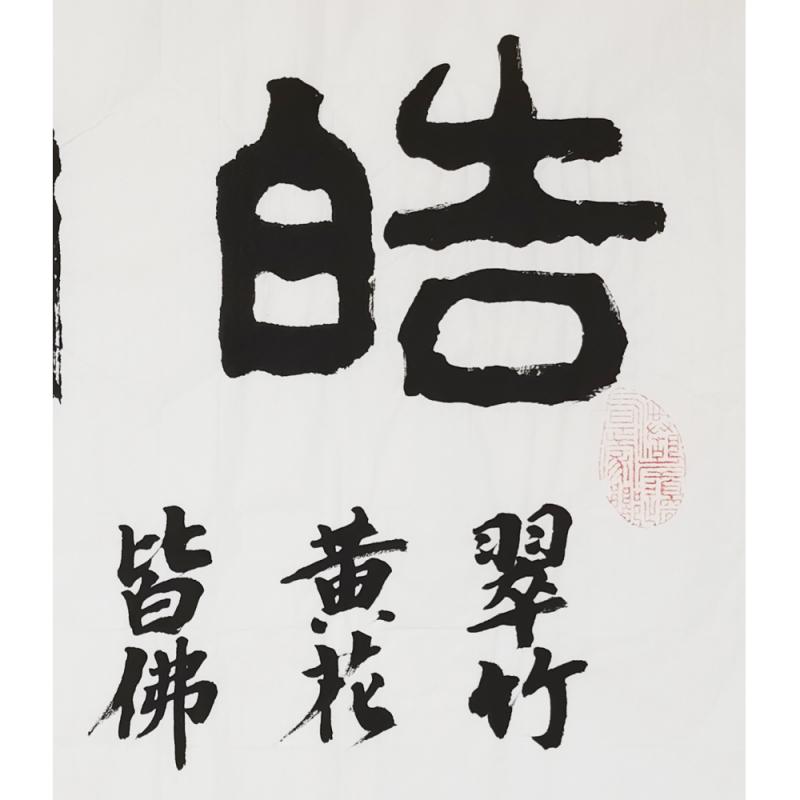 皓
翠竹
黄花
皆佛